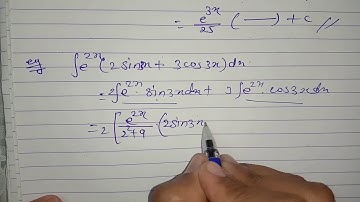 = e^3x/25 ( — ) + c //
eg ∫e^2x (2 sin3x + 3cos3x) dx
= 2∫e^2x · sin3x dx + 3∫e^2x · cos3x dx
= 2 [ e^2x/2²+9 · (2sin3x